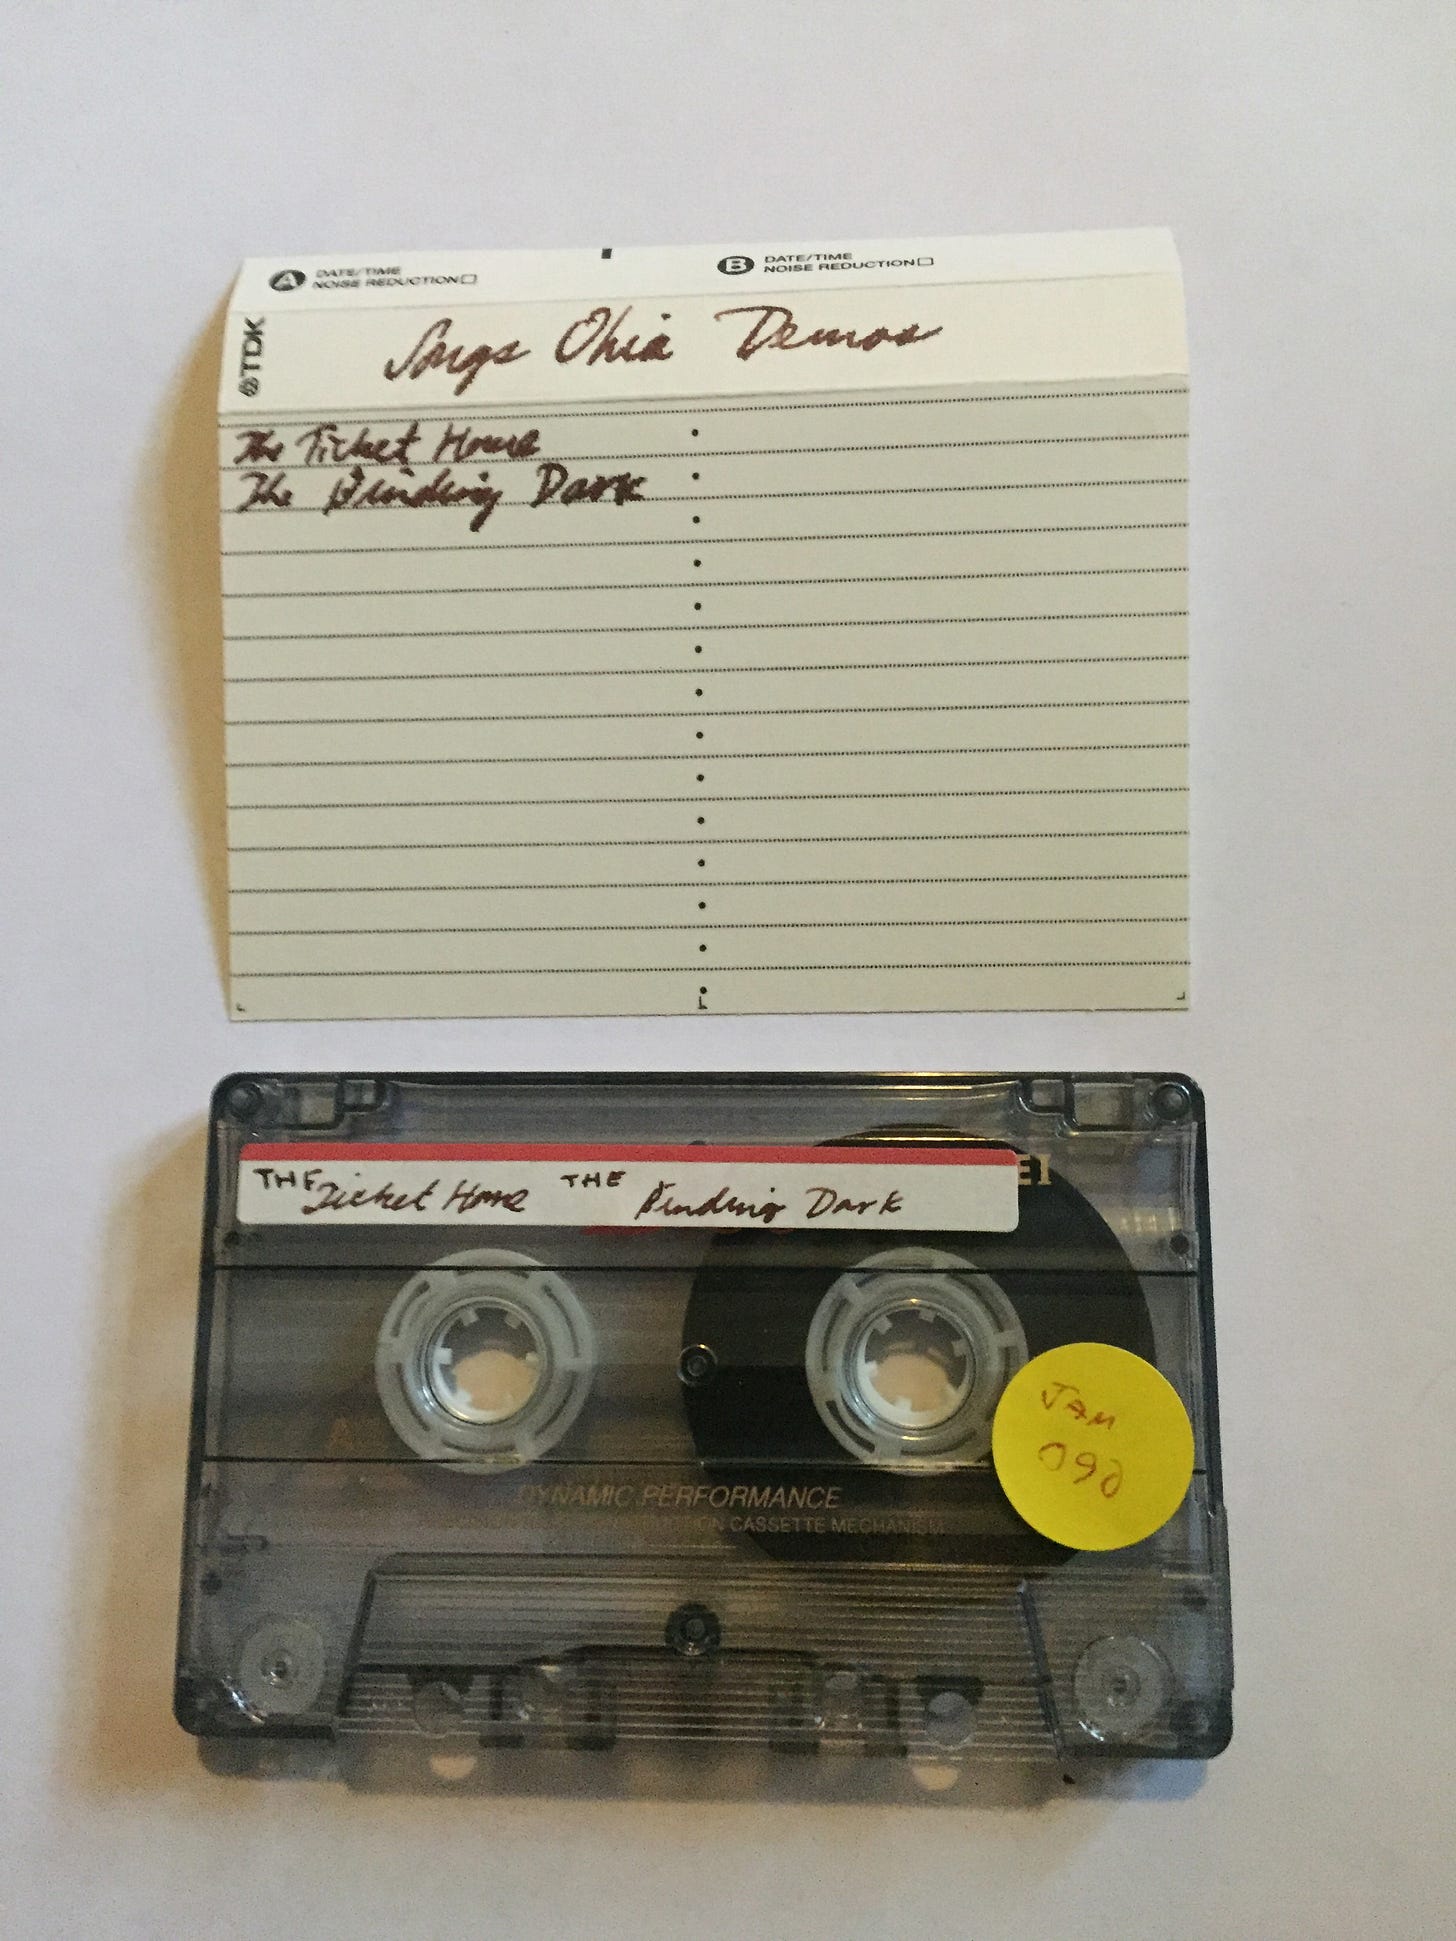 A DATE/TIME
NOISE REDUCTION
B DATE/TIME
NOISE REDUCTION
TDK
Songs Ohia Demos
The Ticket Home
The Binding Dark
EI
THE Ticket Home THE Binding Dark
JAM
090
DYNAMIC PERFORMANCE
CASSETTE MECHANISM